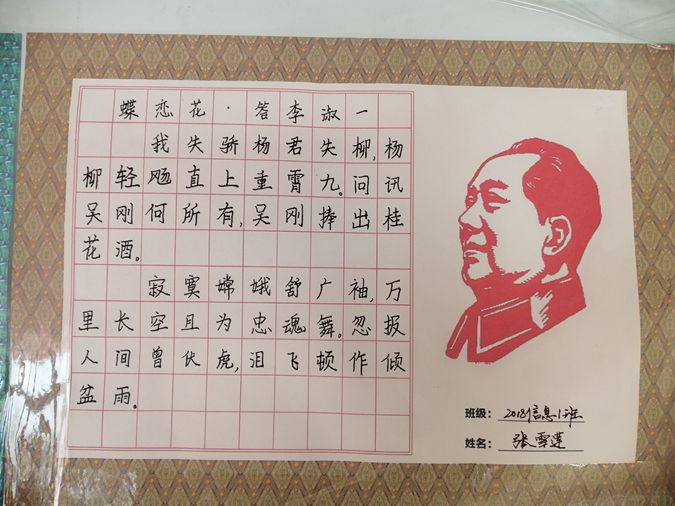 蝶恋花·答李淑一
我失骄杨君失柳,杨
柳轻飏直上重霄九。问讯
吴刚何所有,吴刚捧出桂
花酒。
寂寞嫦娥舒广袖,万
里长空且为忠魂舞。忽报
人间曾伏虎,泪飞顿作倾
盆雨。
班级: 2018信息1班
姓名: 张雪莲